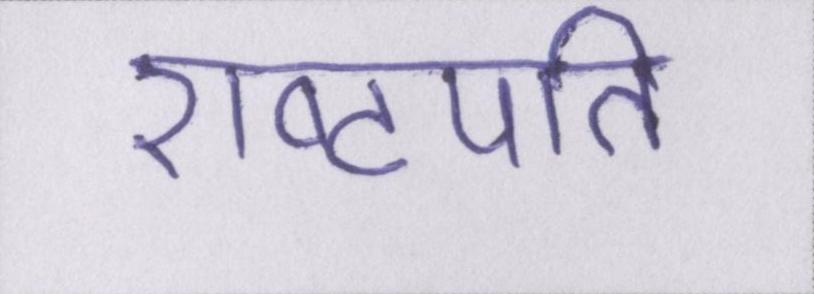 राष्टपति